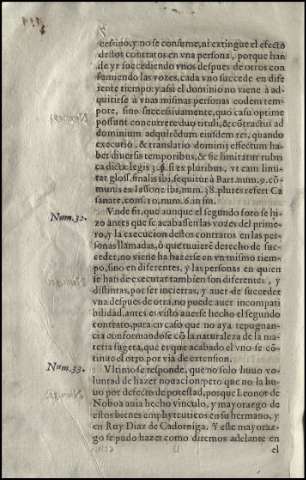 cessino, y no se consume, ni extingue el efecto
destos contratos en vna persona, porque han
de yr succediendo vnos despues de otros con
sumiendo las vozes, cada vno succede en dife
rente tiempo: y assi el dominio no viene à ad-
quirirse à vnas mismas personas eodem tem-
pore, sino successiuamente, quo casu optime
possunt concurrere duo tituli, & cõtractus ad
dominium adquirẽdum eiusdem rei, quando
executio, & translatio dominij effectum ha-
bet diuersis temporibus, & sic limitatur rubri
ca dicta legis 3. §. si res pluribus, vt cum limi-
tat gloss. finalis ibi, sequitur à Bart. num. 9. cõ-
munis ex Iassone ibi, num. 38. plures refert Ca
sanate, cons. 10. num. 6. in fin.
Num. 32. Vnde fit, que aunque el segundo foro se hi-
zo antes que se acabassen las vozes del prime-
ro, y la execucion destos contratos en las per-
sonas llamadas, ò que tuuiere derecho de suc-
ceder, no viene ha hazerse en vn mismo tiem-
po, sino en diferentes, y las personas en quien
se han de executar tambien son diferentes, y
distintas, por ser inciertas, y auer de succeder
vna despues de otra, no puede auer incompati
bilidad, antes es visto auerse hecho el segundo
contrato, para en caso que no aya repugnan-
cia conformandose cõ la naturaleza de la ma-
teria sugeta, que es que acabado el vno se cõ-
tinue el otro por via de extension.
Num. 33. Vltimo se responde, que no solo huuo vo-
luntad de hazer nouacion, pero que no la hu-
uo por defecto de potestad, porque Leonor de
Noboa auia hecho vinculo, y mayorazgo de
estos bienes emphyteuticos en su hermano, y
en Ruy Diaz de Cadorniga. Y este mayoraz-
go se pudo hazer como diremos adelante en
el